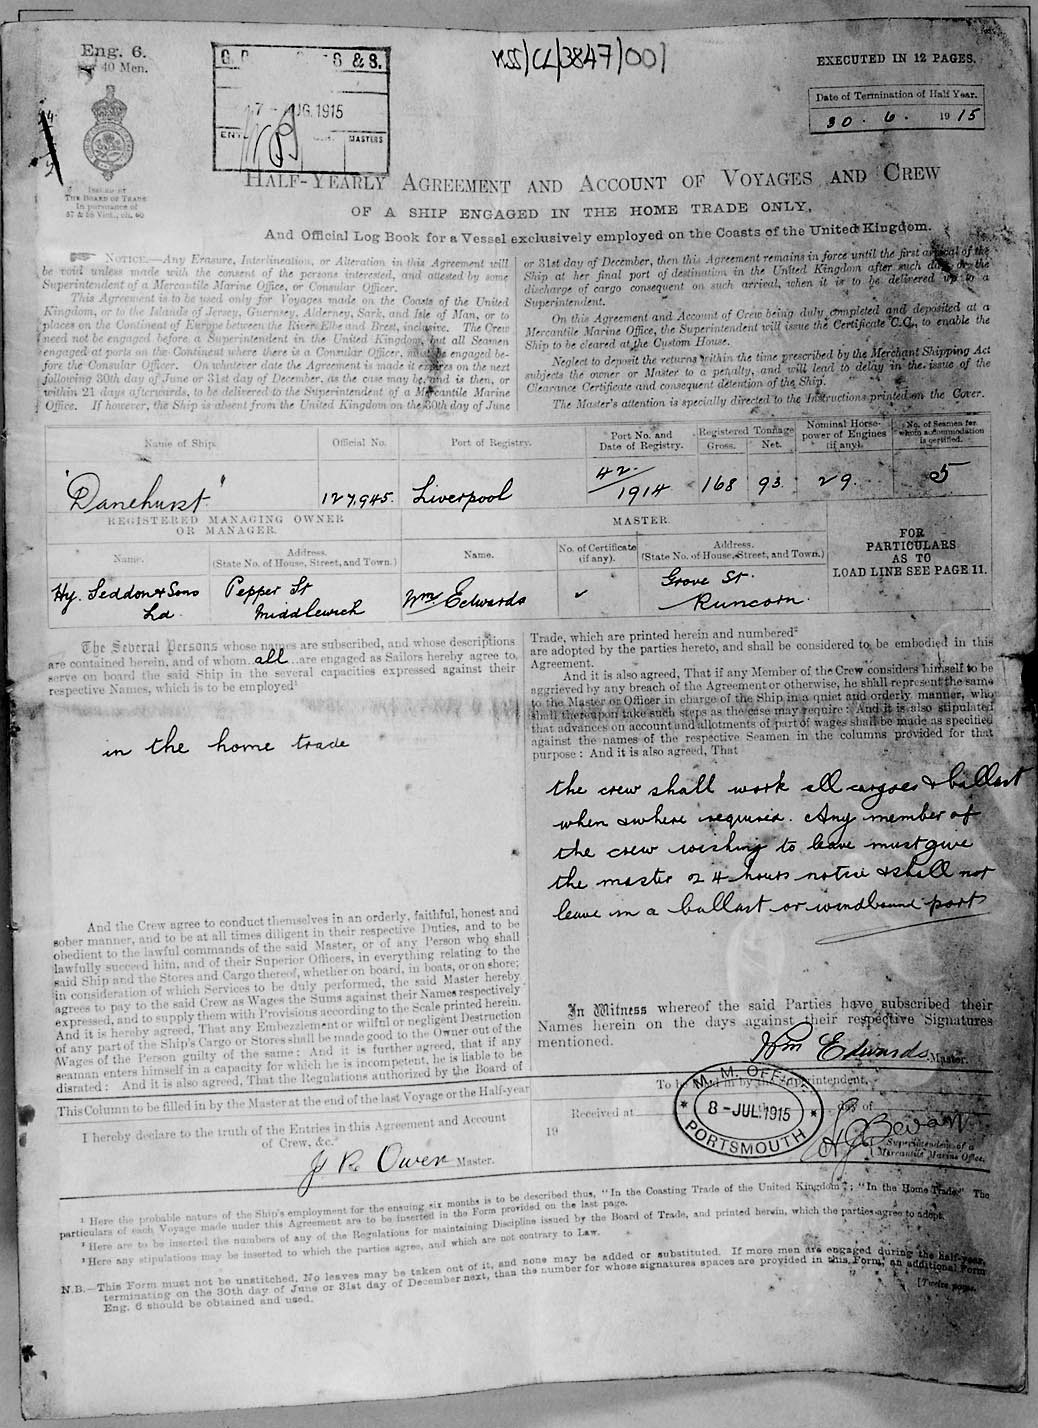 Eng. 6.
40 Men.
ISSUED BY
THE BOARD OF TRADE
In pursuance of
57 & 58 Vict., ch. 60
S & S.
AUG. 1915
MASTERS
NSS/CL/3847/001
EXECUTED IN 12 PAGES.
Date of Termination of Half Year.
30 . 6 . 1915
HALF-YEARLY AGREEMENT AND ACCOUNT OF VOYAGES AND CREW
OF A SHIP ENGAGED IN THE HOME TRADE ONLY,
And Official Log Book for a Vessel exclusively employed on the Coasts of the United Kingdom.
NOTICE.—Any Erasure, Interlineation, or Alteration in this Agreement will
be void unless made with the consent of the persons interested, and attested by some
Superintendent of a Mercantile Marine Office, or Consular Officer.
This Agreement is to be used only for Voyages made on the Coasts of the United
Kingdom, or to the Islands of Jersey, Guernsey, Alderney, Sark, and Isle of Man, or to
places on the Continent of Europe between the River Elbe and Brest, inclusive. The Crew
need not be engaged before a Superintendent in the United Kingdom, but all Seamen
engaged at ports on the Continent where there is a Consular Officer, must be engaged be-
fore the Consular Officer. On whatever date the Agreement is made it expires on the next
following 30th day of June or 31st day of December, as the case may be, and is then, or
within 21 days afterwards, to be delivered to the Superintendent of a Mercantile Marine
Office. If however, the Ship is absent from the United Kingdom on the 30th day of June
or 31st day of December, then this Agreement remains in force until the first arrival of the
Ship at her final port of destination in the United Kingdom after such date or the
discharge of cargo consequent on such arrival, when it is to be delivered up to a
Superintendent.
On this Agreement and Account of Crew being duly completed and deposited at a
Mercantile Marine Office, the Superintendent will issue the Certificate C.C., to enable the
Ship to be cleared at the Custom House.
Neglect to deposit the returns within the time prescribed by the Merchant Shipping Act
subjects the owner or Master to a penalty, and will lead to delay in the issue of the
Clearance Certificate and consequent detention of the Ship.
The Master's attention is specially directed to the Instructions printed on the Cover.
Name of Ship. Official No. Port of Registry. Port No. and Date of Registry. Registered Tonnage Gross. Net. Nominal Horse-power of Engines (if any). No. of Seamen for whom accommodation is certified.
"Danehurst" 127,945. Liverpool 42/1914 168 93 29 5
REGISTERED MANAGING OWNER
OR MANAGER.
MASTER.
FOR
PARTICULARS
AS TO
LOAD LINE SEE PAGE 11.
Name. Address. (State No. of House, Street, and Town.) Name. No. of Certificate (if any). Address. (State No. of House, Street, and Town.)
Hy. Seddon & Sons Ld. Pepper St Middlewich Wm Edwards ✓ Grove St. Runcorn.
The Several Persons whose names are subscribed, and whose descriptions
are contained herein, and of whom all are engaged as Sailors hereby agree to
serve on board the said Ship in the several capacities expressed against their
respective Names, which is to be employed¹
in the home trade
And the Crew agree to conduct themselves in an orderly, faithful, honest and
sober manner, and to be at all times diligent in their respective Duties, and to be
obedient to the lawful commands of the said Master, or of any Person who shall
lawfully succeed him, and of their Superior Officers, in everything relating to the
said Ship and the Stores and Cargo thereof, whether on board, in boats, or on shore;
in consideration of which Services to be duly performed, the said Master hereby
agrees to pay to the said Crew as Wages the Sums against their Names respectively
expressed, and to supply them with Provisions according to the Scale printed herein.
And it is hereby agreed, That any Embezzlement or wilful or negligent Destruction
of any part of the Ship's Cargo or Stores shall be made good to the Owner out of the
Wages of the Person guilty of the same: And it is further agreed, that if any
seaman enters himself in a capacity for which he is incompetent, he is liable to be
disrated: And it is also agreed, That the Regulations authorized by the Board of
Trade, which are printed herein and numbered²
are adopted by the parties hereto, and shall be considered to be embodied in this
Agreement.
And it is also agreed, That if any Member of the Crew considers himself to be
aggrieved by any breach of the Agreement or otherwise, he shall represent the same
to the Master or Officer in charge of the Ship in a quiet and orderly manner, who
shall thereupon take such steps as the case may require: And it is also stipulated
that advances on account and allotments of part of wages shall be made as specified
against the names of the respective Seamen in the columns provided for that
purpose: And it is also agreed, That
the crew shall work all cargoes & ballast
when & where required. Any member of
the crew wishing to leave must give
the master 24 hours notice & shall not
leave in a ballast or windbound port
In Witness whereof the said Parties have subscribed their
Names herein on the days against their respective Signatures
mentioned.
Wm Edwards Master.
This Column to be filled in by the Master at the end of the last Voyage or the Half-year
I hereby declare to the truth of the Entries in this Agreement and Account
of Crew, &c.
Owen Master.
To be filled in by the Superintendent.
Received at day of
19
M. M. OFFICE
8 - JUL. 1915
PORTSMOUTH
Bevan
Superintendent of a
Mercantile Marine Office.
¹ Here the probable nature of the Ship's employment for the ensuing six months is to be described thus, "In the Coasting Trade of the United Kingdom"; "In the Home Trade." The
particulars of each Voyage made under this Agreement are to be inserted in the Form provided on the last page.
² Here are to be inserted the numbers of any of the Regulations for maintaining Discipline issued by the Board of Trade, and printed herein, which the parties agree to adopt.
³ Here any stipulations may be inserted to which the parties agree, and which are not contrary to Law.
N.B.—This Form must not be unstitched. No leaves may be taken out of it, and none may be added or substituted. If more men are engaged during the half-year,
terminating on the 30th day of June or 31st day of December next, than the number for whose signatures spaces are provided in this Form, an additional Form
Eng. 6 should be obtained and used.
[Twelve pages.